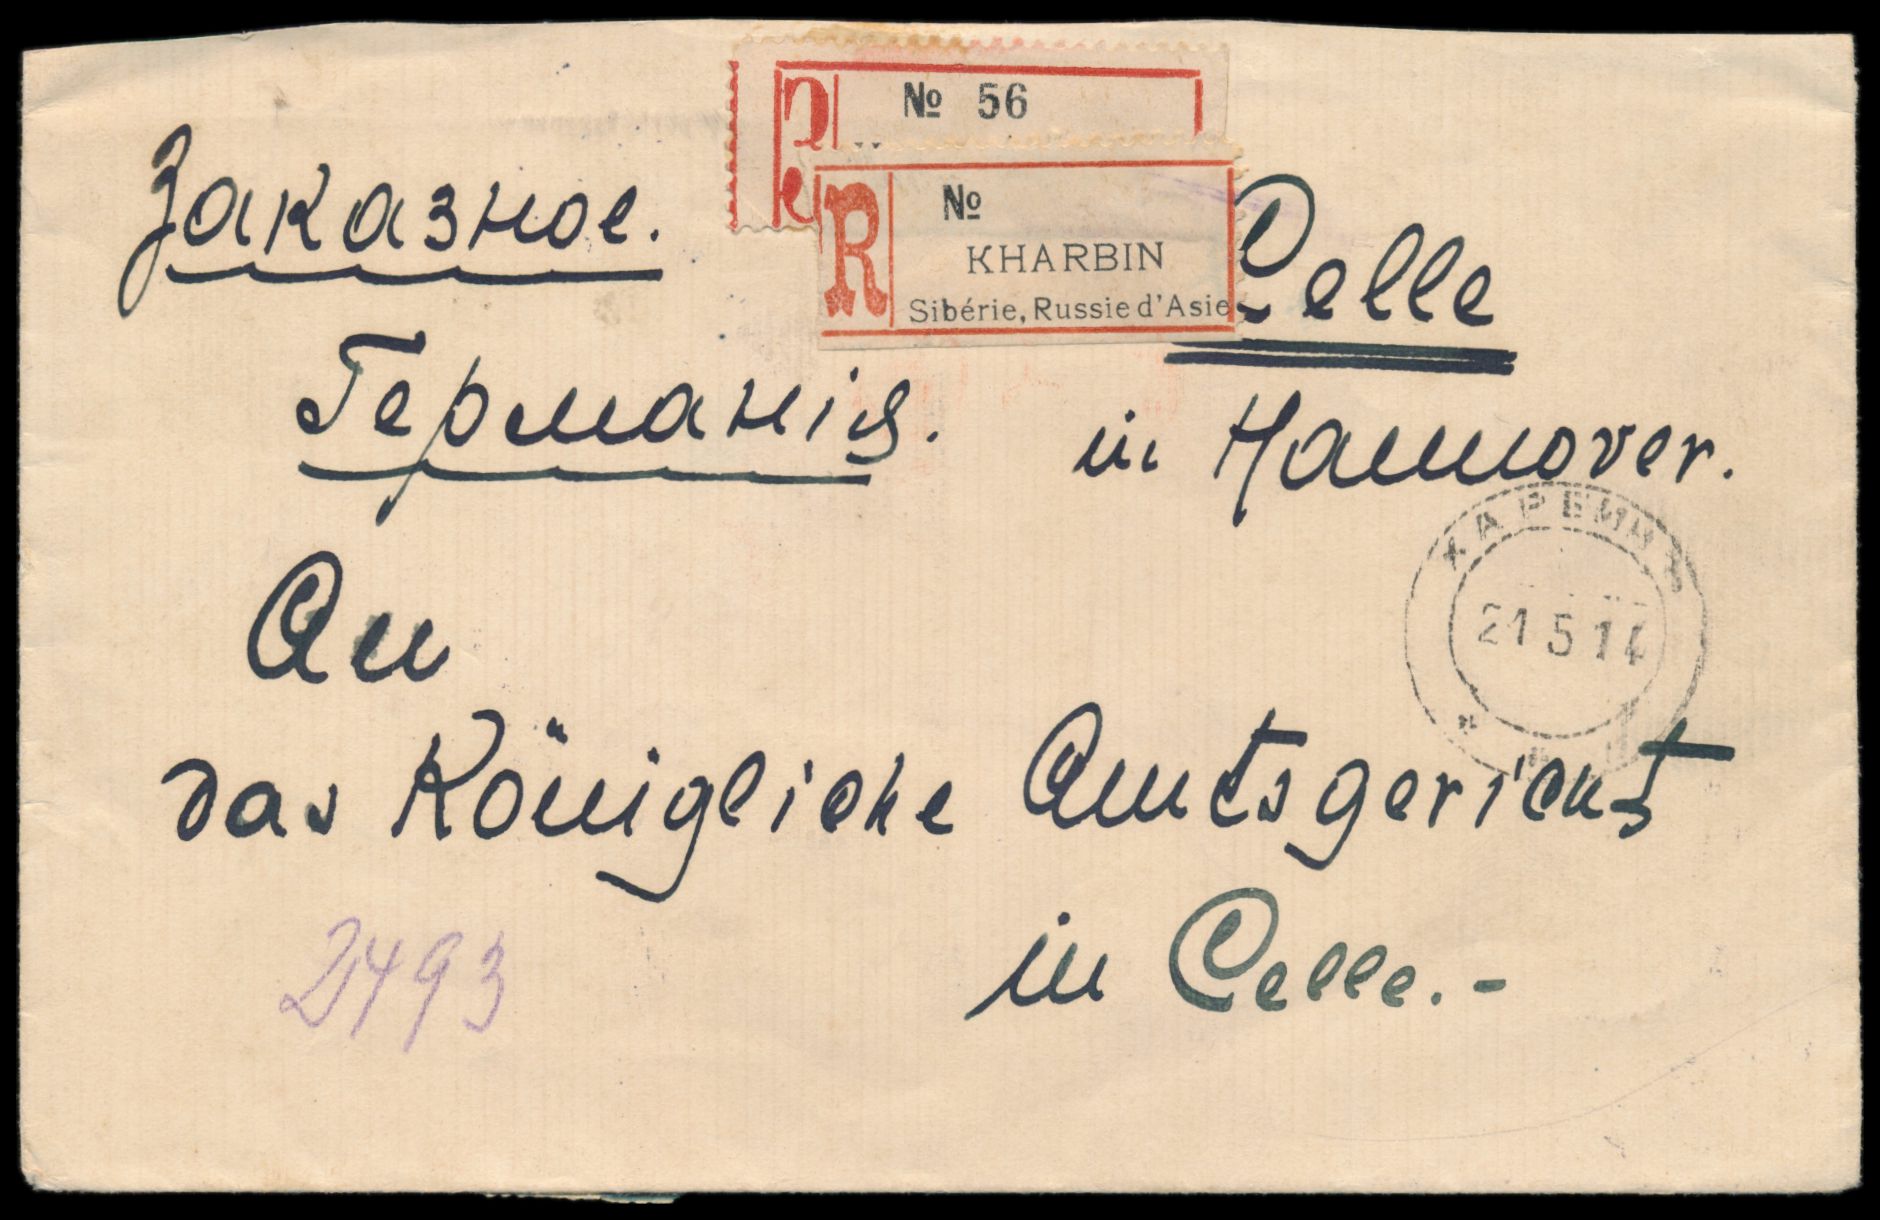 № 56
R №
KHARBIN
Sibérie, Russie d'Asie
Заказное.
Германія.
Celle
in Hannover.
ХАРБИНЪ
21 5 14
An
das Königliche Amtsgericht
in Celle.-
2493